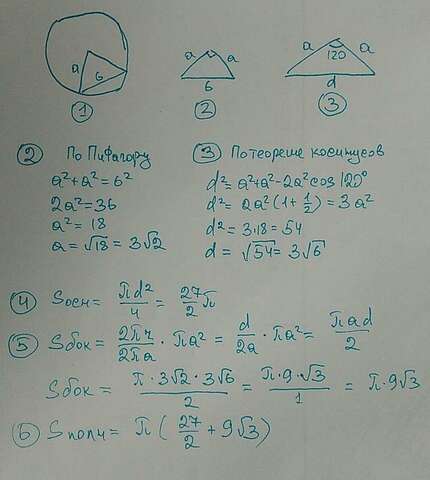 a 6
a a
6
a 120 a
d
① ② ③
② По Пифагору
a²+a²=6²
2a²=36
a²=18
a=√18=3√2
③ По теореме косинусов
d²=a²+a²-2a²cos120°
d²=2a²(1+1/2)=3a²
d²=3·18=54
d=√54=3√6
④ Sосн=πd²/4=27/2π
⑤ Sбок=2πr/2πa·πa²=d/2a·πa²=πad/2
Sбок=π·3√2·3√6/2=π·9·√3/1=π·9√3
⑥ Sполн=π(27/2+9√3)